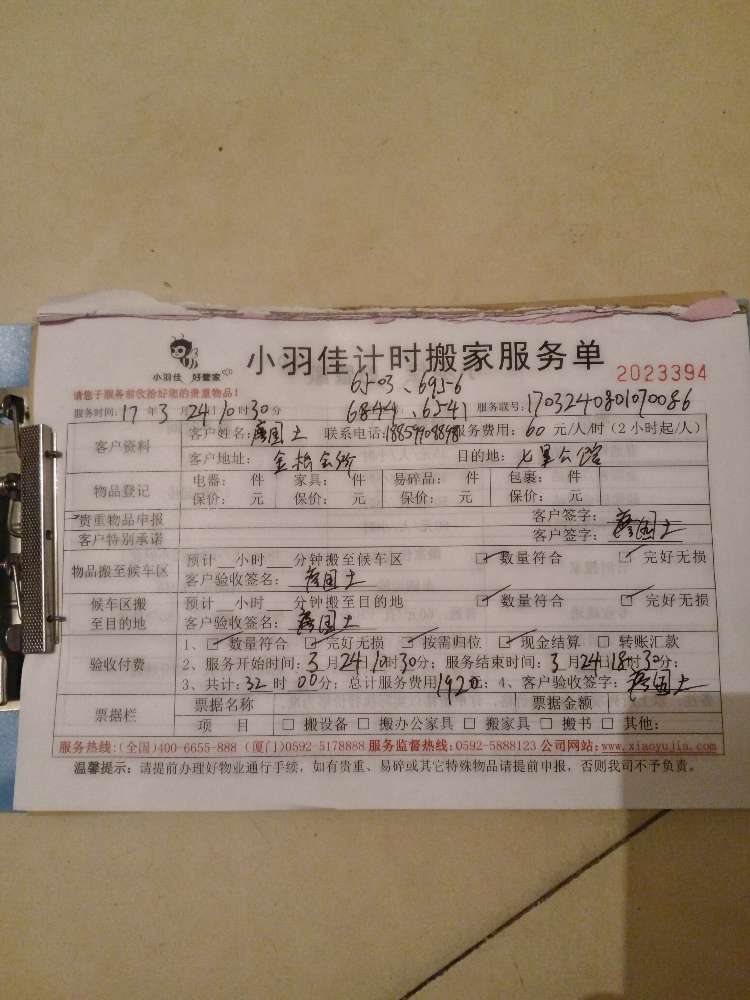 小羽佳 好管家
小羽佳计时搬家服务单
2023394
请您于服务前收拾好您的贵重物品！
6503、6956
6844、6541
服务时间：17年3月24日10时30分 服务联号：1703240801070086
客户资料
客户姓名：国土 联系电话： 服务费用：60元/人/时（2小时起/人）
客户地址： 目的地：七里公馆
物品登记
电器： 件 家具： 件 易碎品： 件 包裹： 件
保价： 元 保价： 元 保价： 元 保价： 元
贵重物品申报 客户签字：国土
客户特别承诺 客户签字：国土
物品搬至候车区
预计__小时___分钟搬至候车区 ☑数量符合 ☑完好无损
客户验收签名：国土
候车区搬至目的地
预计__小时___分钟搬至目的地 ☑数量符合 ☑完好无损
客户验收签名：国土
验收付费
1、☑数量符合 ☑完好无损 ☑按需归位 ☑现金结算 □转账汇款
2、服务开始时间：3月24日10时30分；服务结束时间：3月24日18时30分；
3、共计：32时00分；总计服务费用1920元；4、客户验收签字：国土
票据栏
票据名称 票据金额
项 目 □搬设备 □搬办公家具 □搬家具 □搬书 □其他：
服务热线：(全国)400-6655-888 (厦门)0592-5178888 服务监督热线：0592-5888123 公司网站：www.xiaoyujia.com
温馨提示：请提前办理好物业通行手续，如有贵重、易碎或其它特殊物品请提前申报，否则我司不予负责。